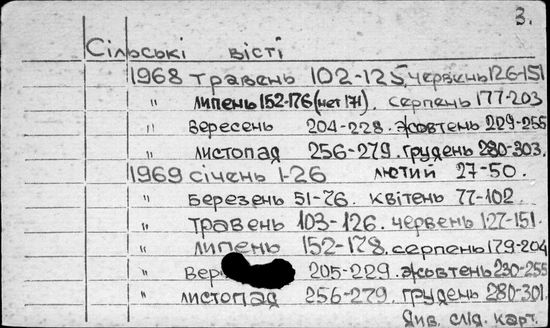 3.
Сільські вісті
1968 травень 102-125, червень 126-151
" липень 152-176 (нет 171). серпень 177-203
" вересень 204-228. жовтень 229-255
" листопад 256-279. грудень 280-303.
1969 січень 1-26 лютий 27-50.
" березень 51-76. квітень 77-102.
" травень 103-126. червень 127-151.
" липень 152-178. серпень 179-204
" 205-229. жовтень 230-255
" листопад 256-279. грудень 280-301.
Див. слід. карт.